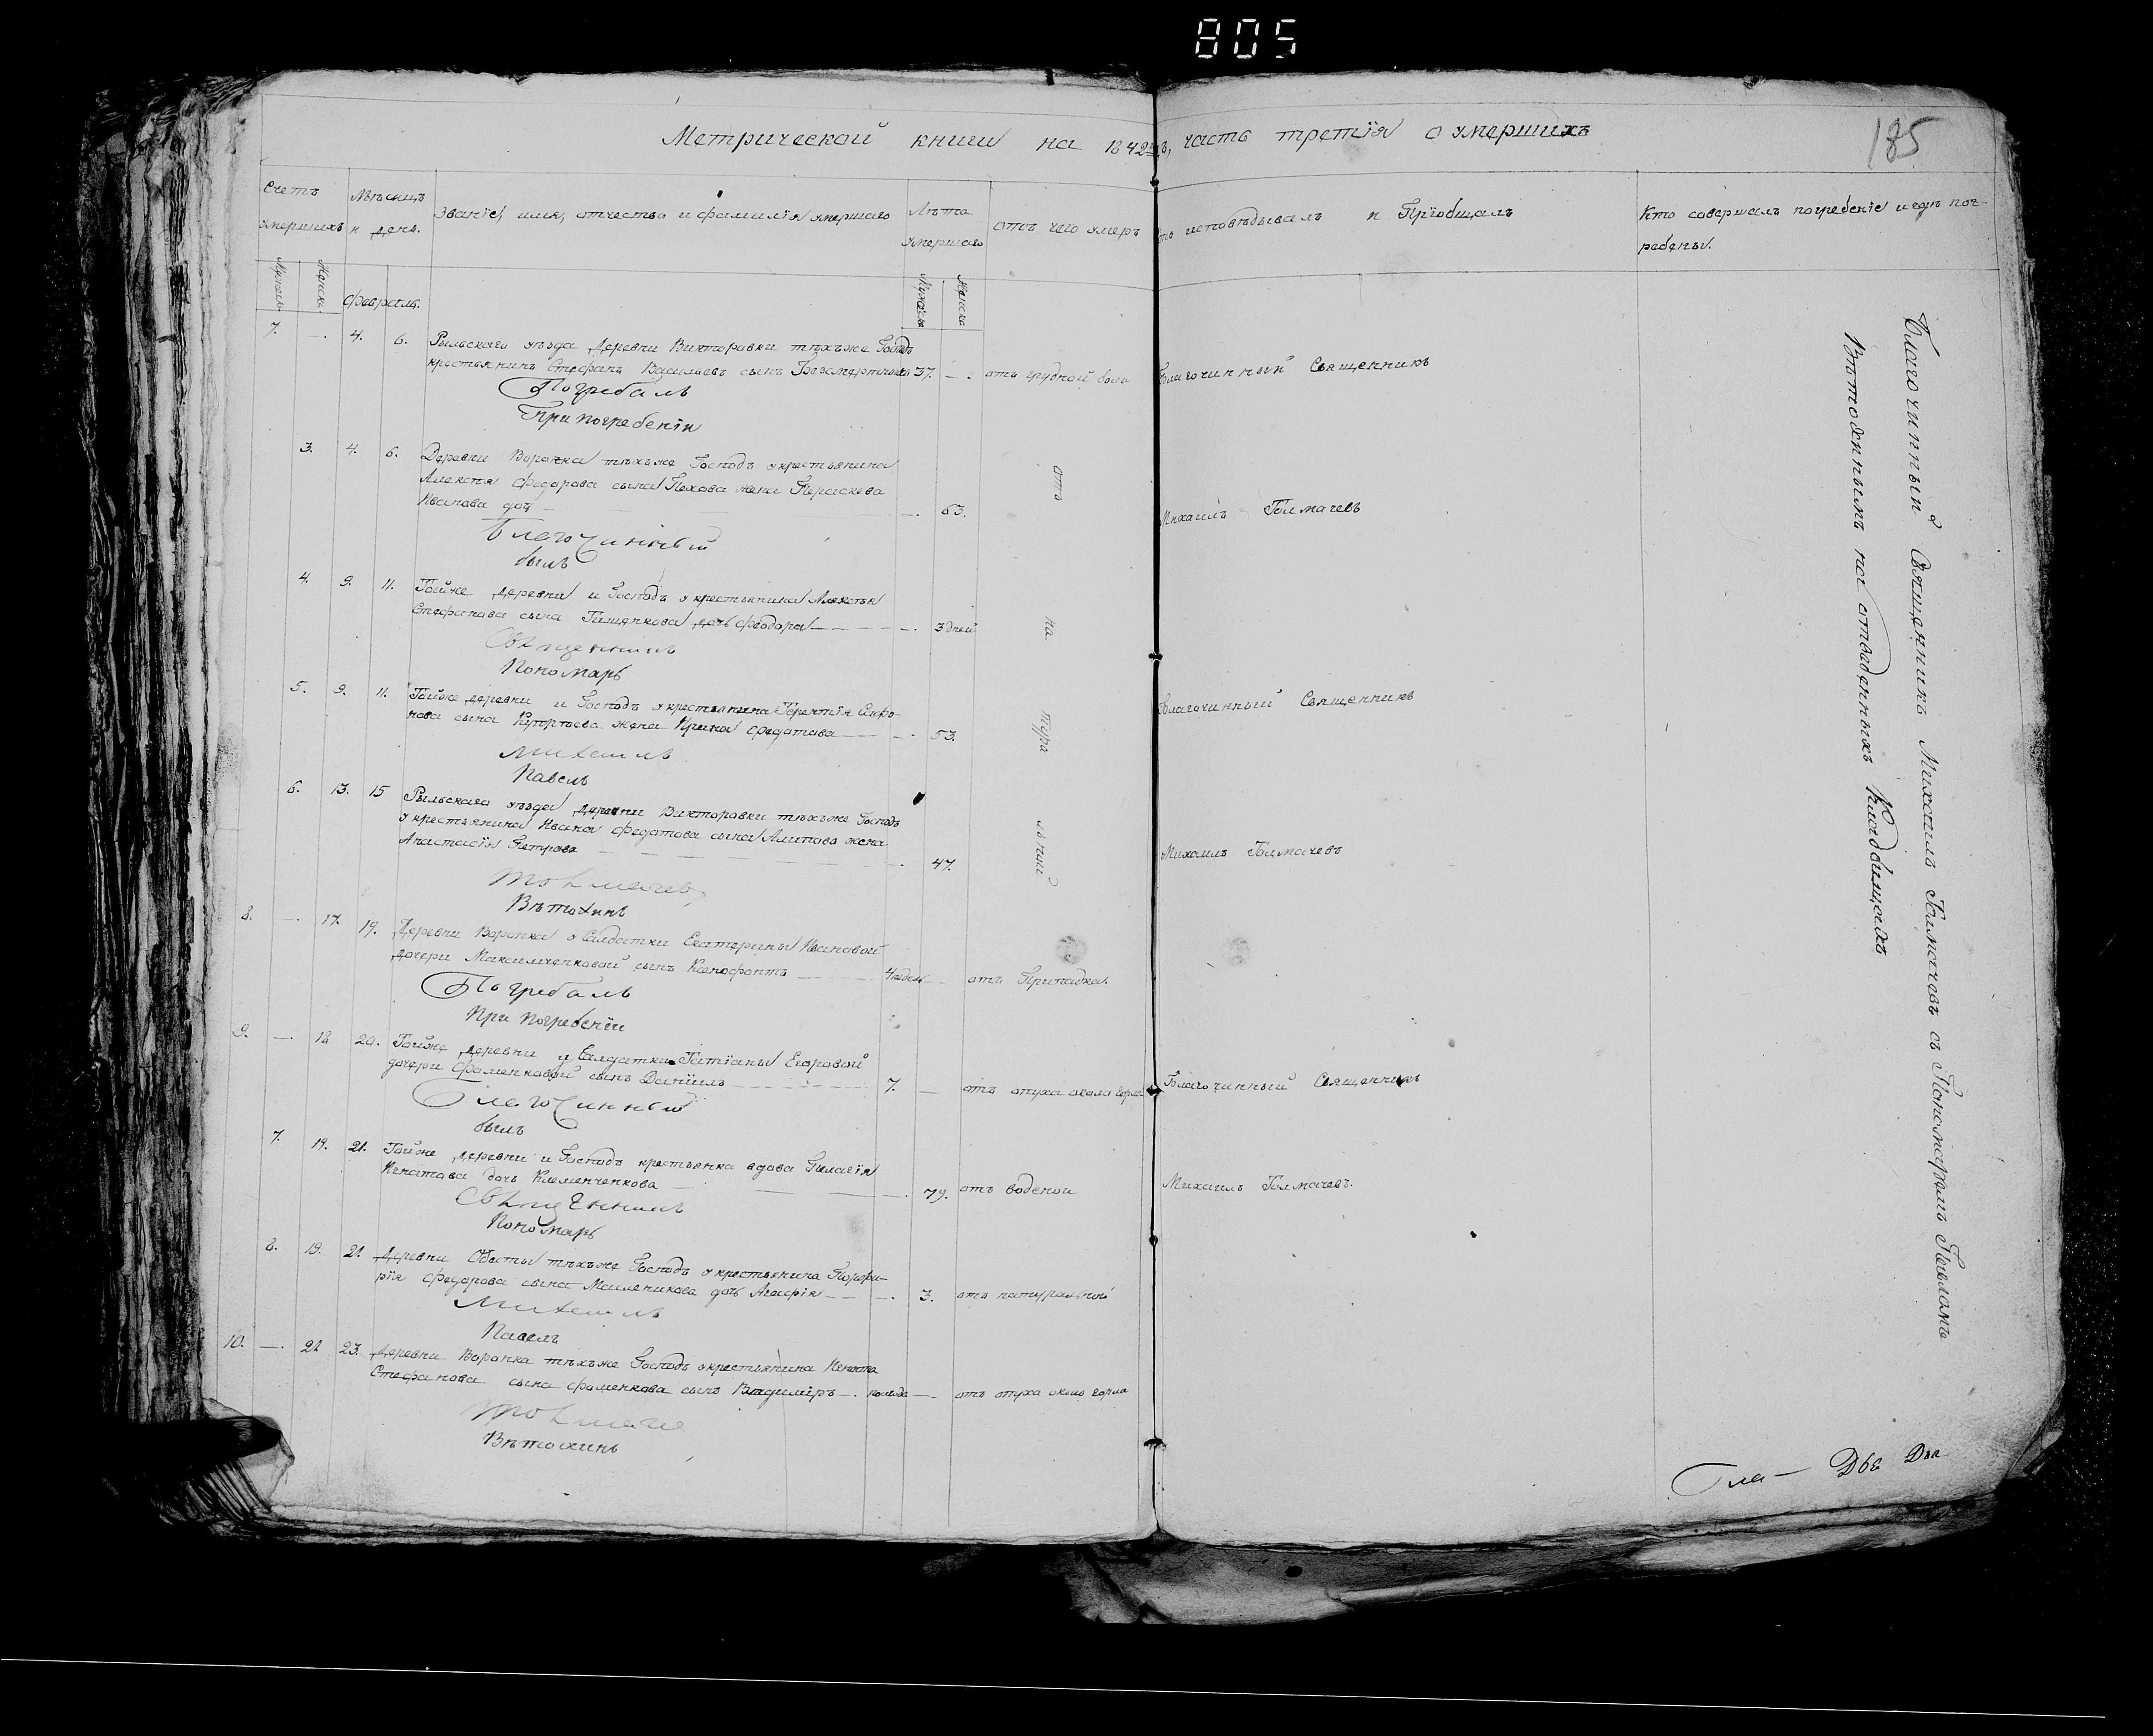 805
Метрической книги на 1842 годъ, часть третія о умершихъ
185
Счетъ умершихъ
Мѣсяцъ и день.
Званіе, имя, отчество и фамилія умершаго
Лѣта умершаго
отъ чего умеръ
исповѣдывалъ и Пріобщалъ
Кто совершалъ погребеніе и гдѣ погребены.
Мужска
Женска
Февраль.
Мужска
Женска
7. —. 4. 6. Рыльскаго уѣзда Деревни Викторовки тѣхъже Господъ
крестьянинъ Стефанъ Васильевъ сынъ 37. — отъ грудной боли
Благочинный Священникъ
Погребалъ
При погребеніи
3. 4. 6. Деревни Воронка тѣхъже Господъ укрестьянина
Алексѣя Федорова сына Пехова жена Пераскева
Иванова доч — —. 63. отъ
Михаилъ Толмачевъ
Благочинный
былъ
4. 9. 11. Тойже деревни и Господъ укрестьянина Алексѣя
Стефанова сына Тимченкова дочь Феодора — —. 3 дней на
Священникъ
Пономарь
5. 9. 11. Тойже деревни и Господъ укрестьянина Терентія
сына жена Ирина Федотова — —. 53. тура
Благочинный Священникъ
Михаилъ
Павелъ
6. 13. 15 Рыльскаго уѣзда Деревни Викторовки тѣхъже Господъ
укрестьянина Ивана Федотова сына Алипова жена
Анастасія Петрова — —. 47. льной
Михаилъ Толмачевъ
Толмачевъ
Вѣтохинъ
8. —. 17. 19. Деревни Воронка у Салдатки Екатерины Ивановой
дочери Максимченковой сынъ Ксенофонтъ — 4 недел — отъ Припадка.
Погребалъ
При погребеніи
9. —. 18 20. Тойже деревни у Салдатки Татіаны Егоровой
дочери Фоменковой сынъ Даніилъ — 7. — отъ опуха около горла
Благочинный Священникъ
Благочинный
былъ
7. 19. 21. Тойже деревни и Господъ крестьянка вдова Пелагія
дочь Клеменченкова — —. 79. отъ водяной
Михаилъ Толмачевъ.
Священникъ
Пономарь
8. 19. 21 Деревни Обеты тѣхъже Господъ укрестьянина Порфи-
рія Федорова сына Масленикова дочь Агафія — —. 3. отъ натуральной
Михаилъ
Павелъ
10. —. 21 23. Деревни Воронка тѣхъже Господъ укрестьянина
Стефанова сына Фоменкова сынъ Владиміръ —. полгода — отъ опуха около горла
Вѣтохинъ
Благочинный Священникъ Михаилъ Толмачевъ съ Пономаремъ Павломъ
Вѣтохинымъ на отведенныхъ Кладбищахъ
Гла — Два Два